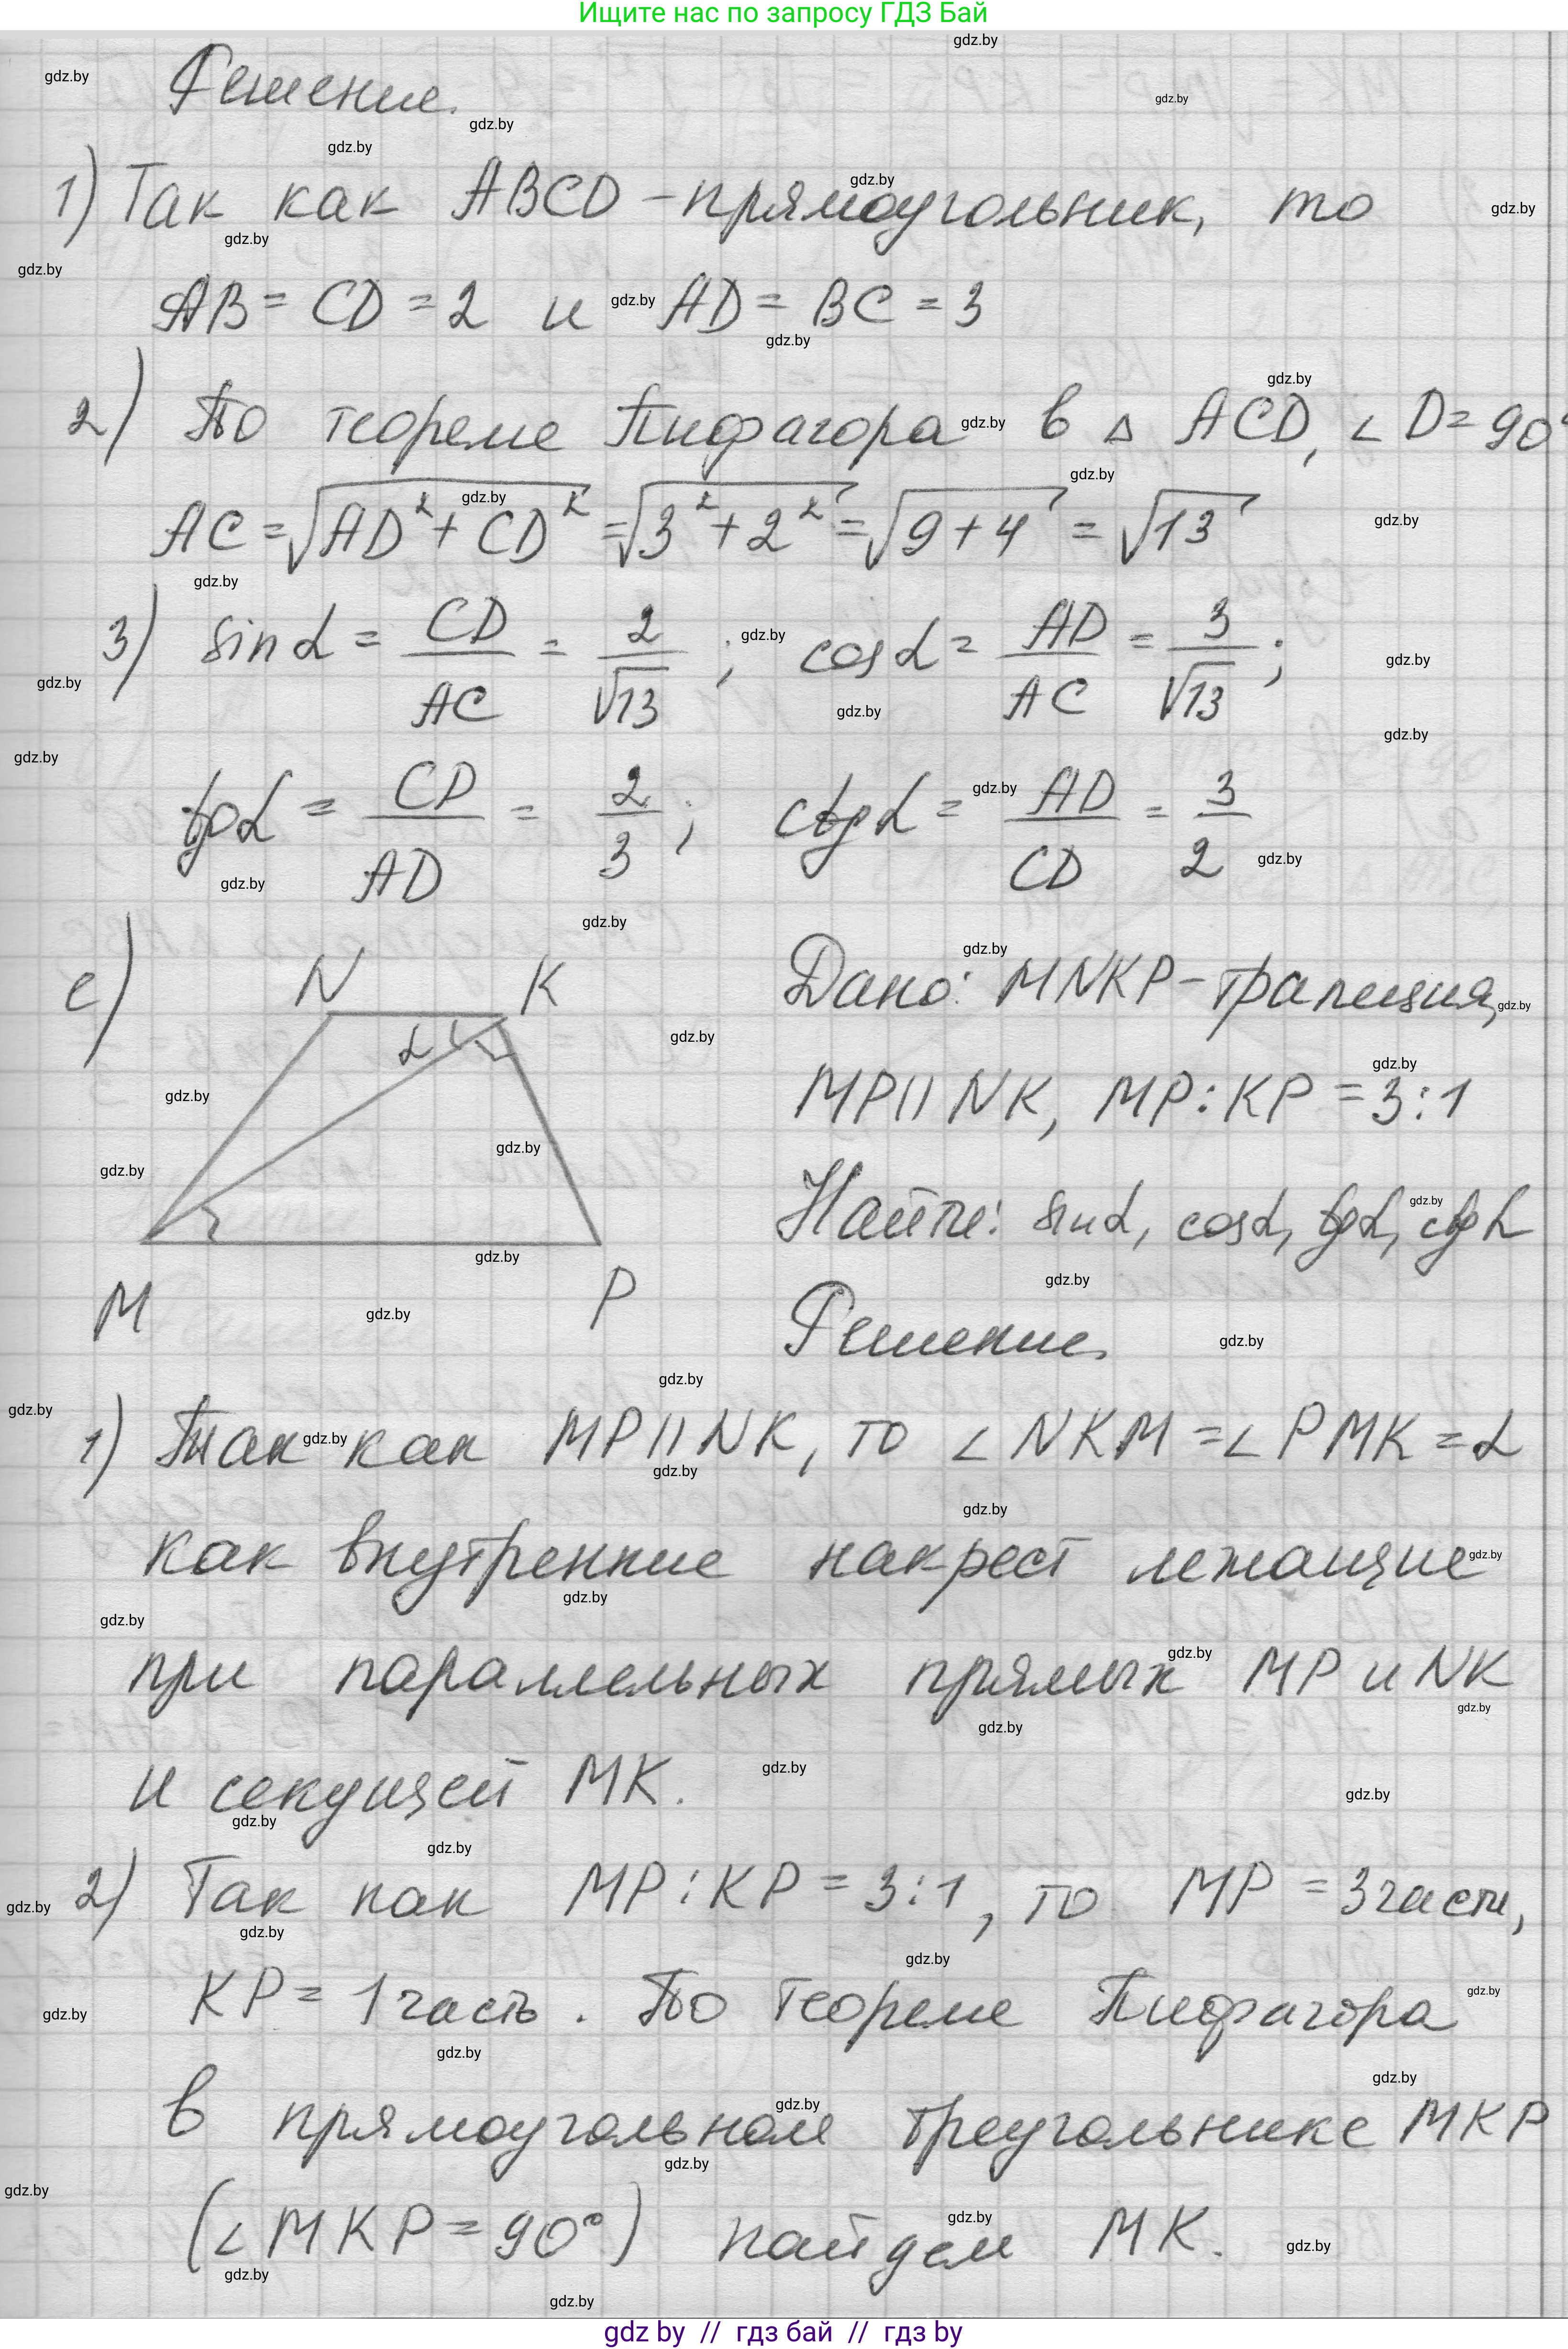 Ищите нас по запросу ГДЗ Бай
Решение.
1) Так как ABCD - прямоугольник, то
AB = CD = 2 и AD = BC = 3
2) По теореме Пифагора в △ ACD, ∠D = 90°
AC = √(AD² + CD²) = √(3² + 2²) = √(9 + 4) = √13
3) sin α = CD/AC = 2/√13 ; cos α = AD/AC = 3/√13 ;
tg α = CD/AD = 2/3 ; ctg α = AD/CD = 3/2
е)
N K
α
M P
Дано: MNKP - трапеция,
MP || NK, MP : KP = 3 : 1
Найти: sin α, cos α, tg α, ctg α
Решение.
1) Так как MP || NK, то ∠NKM = ∠PMK = α
как внутренние накрест лежащие
при параллельных прямых MP и NK
и секущей MK.
2) Так как MP : KP = 3 : 1, то MP = 3 части,
KP = 1 часть. По теореме Пифагора
в прямоугольном треугольнике MKP
(∠MKP = 90°) найдем MK.
gdz by // гдз бай // гдз by